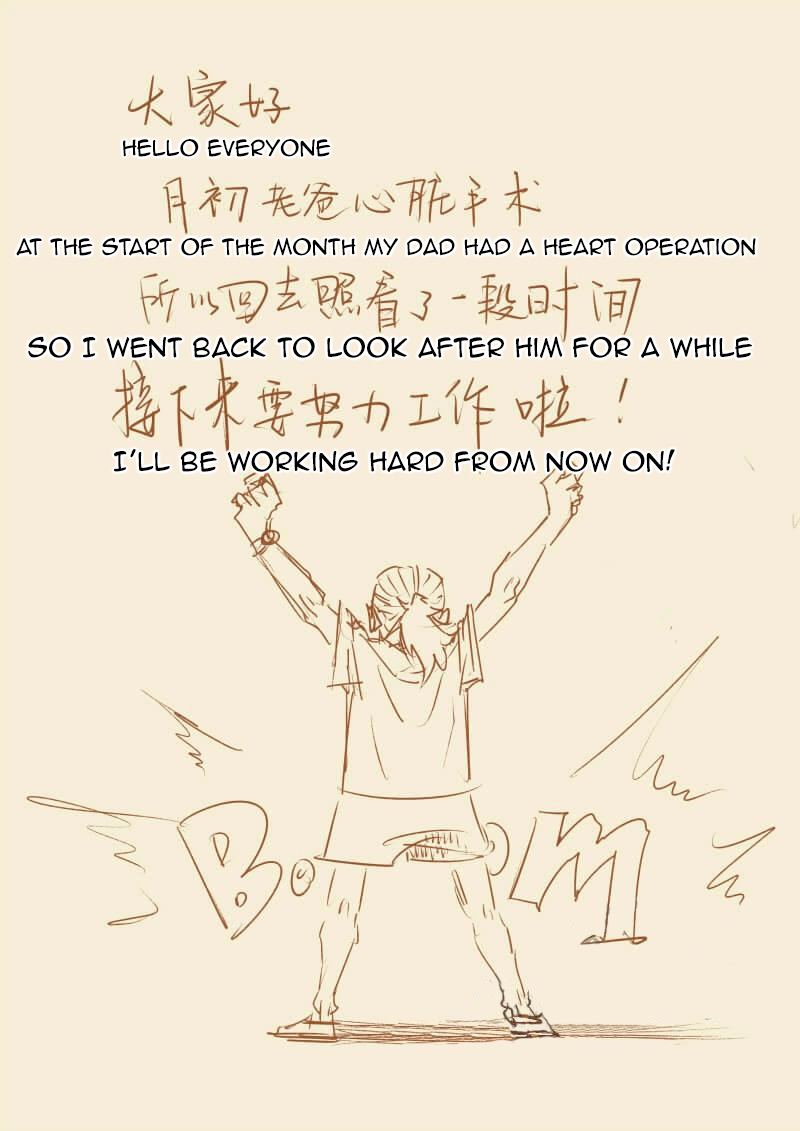 大家好
HELLO EVERYONE
月初老爸心脏手术
AT THE START OF THE MONTH MY DAD HAD A HEART OPERATION
所以回去照看了一段时间
SO I WENT BACK TO LOOK AFTER HIM FOR A WHILE
接下来要努力工作啦！
I'LL BE WORKING HARD FROM NOW ON!
BOOM